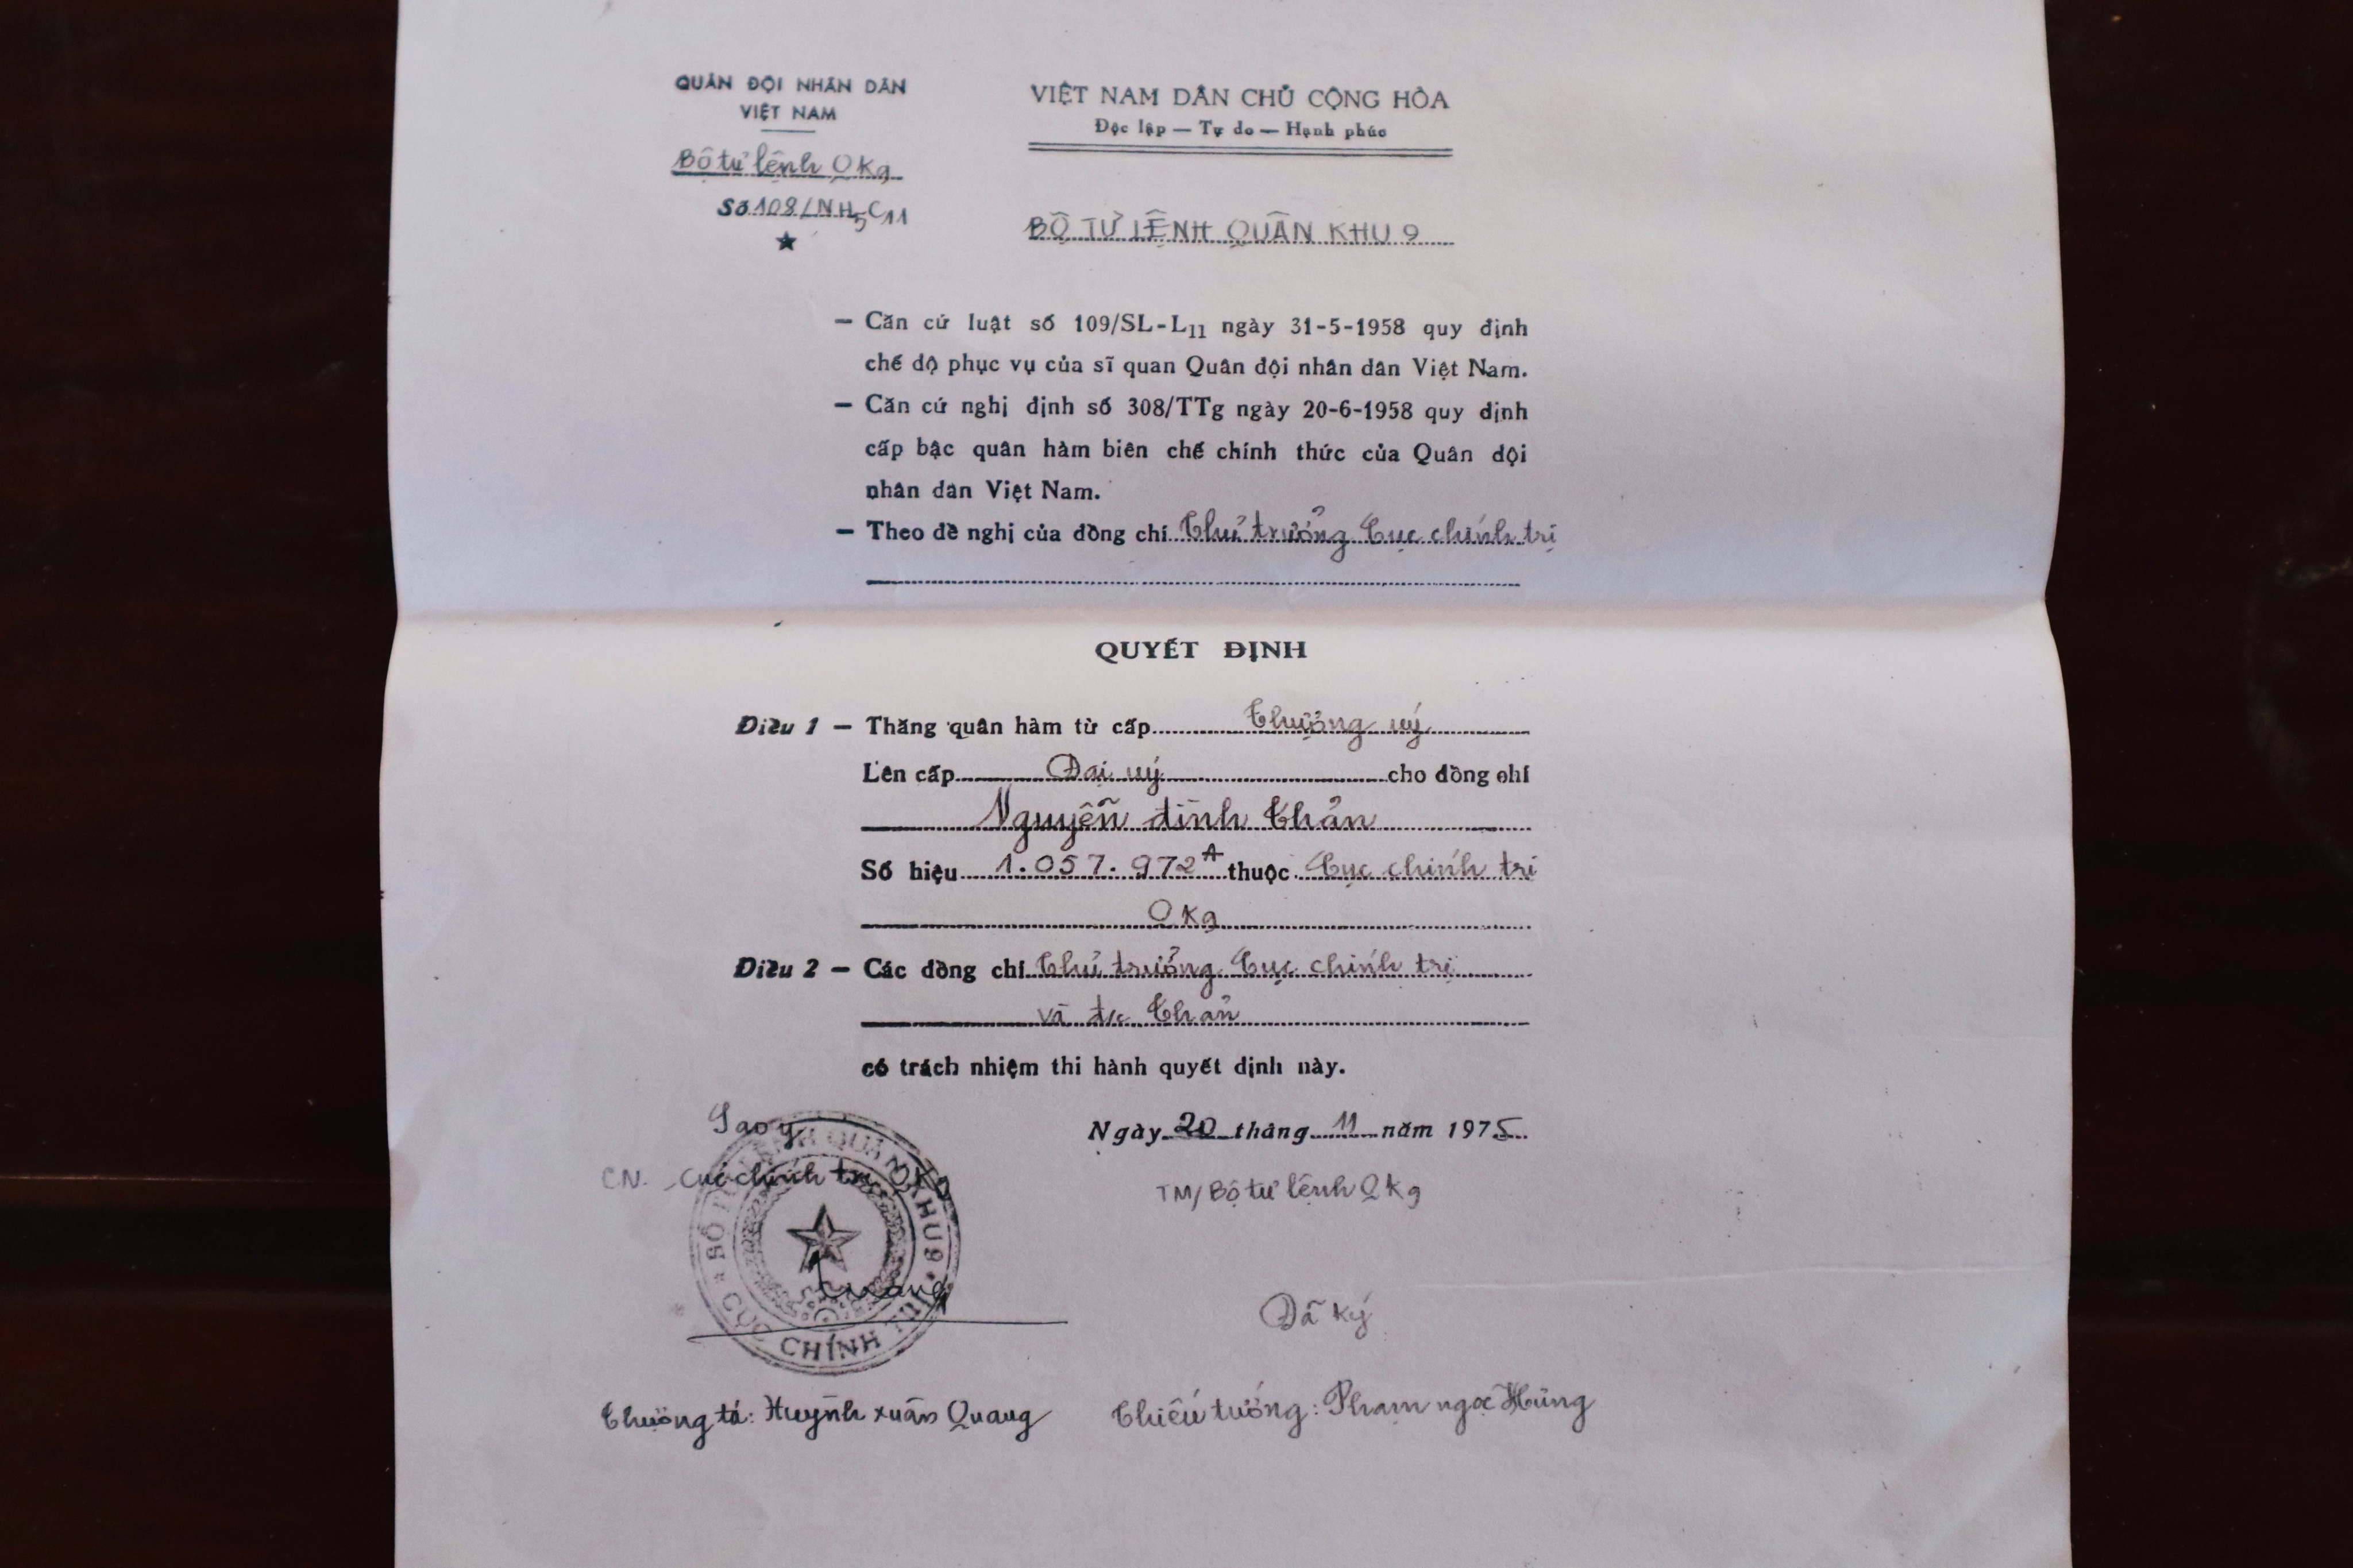 QUÂN ĐỘI NHÂN DÂN
VIỆT NAM
Bộ tư lệnh QK9
Số 108/NH5C11
VIỆT NAM DÂN CHỦ CỘNG HÒA
Độc lập — Tự do — Hạnh phúc
BỘ TƯ LỆNH QUÂN KHU 9
— Căn cứ luật số 109/SL-L11 ngày 31-5-1958 quy định
chế độ phục vụ của sĩ quan Quân đội nhân dân Việt Nam.
— Căn cứ nghị định số 308/TTg ngày 20-6-1958 quy định
cấp bậc quân hàm biên chế chính thức của Quân đội
nhân dân Việt Nam.
— Theo đề nghị của đồng chí Thủ trưởng Cục chính trị
QUYẾT ĐỊNH
Điều 1 — Thăng quân hàm từ cấp Thượng uý
Lên cấp Đại uý cho đồng chí
Nguyễn đình Thản
Số hiệu 1.057.972A thuộc Cục chính trị
QK9
Điều 2 — Các đồng chí Thủ trưởng Cục chính trị
và đ/c Thản
có trách nhiệm thi hành quyết định này.
Ngày 20 tháng 11 năm 1975
Sao y
CN. Cục chính trị QK9
TM/Bộ tư lệnh QK9
BỘ TƯ LỆNH QUÂN KHU 9
CỤC CHÍNH TRỊ
Quang
Đã ký
Thượng tá: Huỳnh xuân Quang
Thiếu tướng: Phạm ngọc Hùng